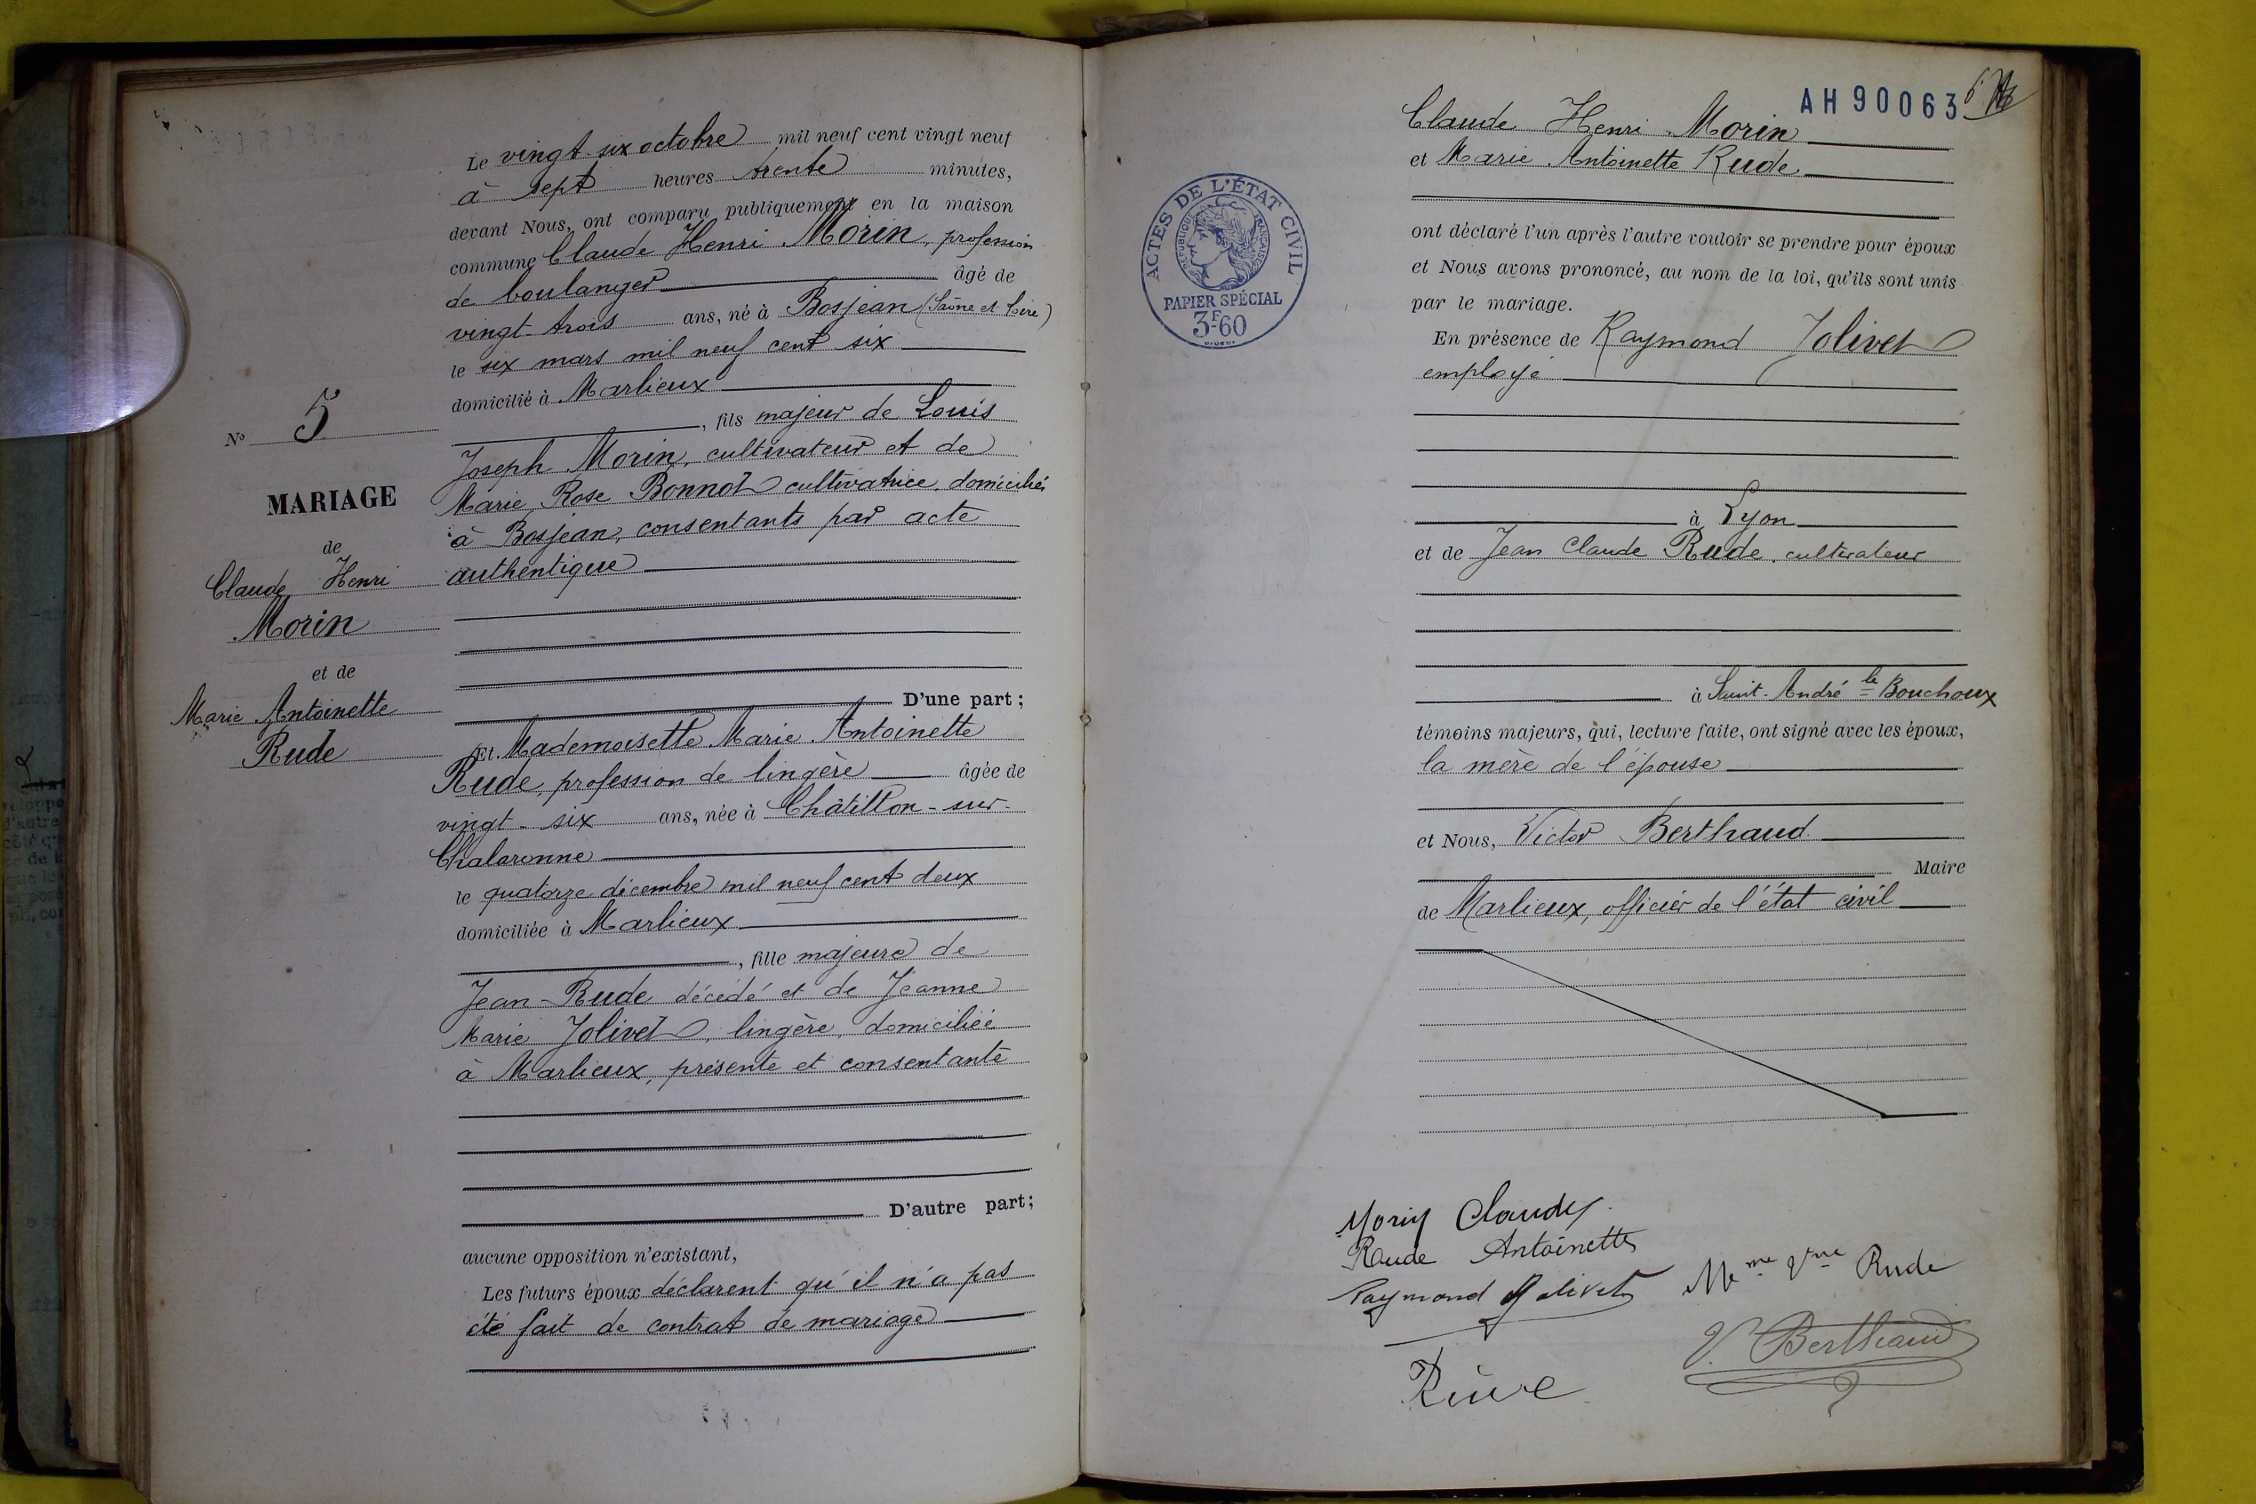 Le vingt-six octobre mil neuf cent vingt neuf
à sept heures trente minutes,
devant Nous, ont comparu publiquement en la maison
commune Claude Henri Morin, profession
de boulanger âgé de
vingt-trois ans, né à Bosjean (Saône et Loire)
le six mars mil neuf cent six
domicilié à Marlieux
, fils majeur de Louis
Joseph Morin, cultivateur et de
Marie Rose Bonnot cultivatrice, domiciliés
à Bosjean, consentants par acte
authentique
D'une part ;
Et Mademoiselle Marie Antoinette
Rude, profession de lingère âgée de
vingt-six ans, née à Châtillon-sur-
Chalaronne
le quatorze décembre mil neuf cent deux
domiciliée à Marlieux
, fille majeure de
Jean Rude décédé et de Jeanne
Marie Jolivet, lingère, domiciliée
à Marlieux, présente et consentante
D'autre part ;
aucune opposition n'existant,
Les futurs époux déclarent qu'il n'a pas
été fait de contrat de mariage
No 5
MARIAGE
de
Claude Henri
Morin
et de
Marie Antoinette
Rude
AH 90063
ACTES DE L'ÉTAT CIVIL
RÉPUBLIQUE FRANÇAISE
PAPIER SPÉCIAL
3F-60
Claude Henri Morin
et Marie Antoinette Rude
ont déclaré l'un après l'autre vouloir se prendre pour époux
et Nous avons prononcé, au nom de la loi, qu'ils sont unis
par le mariage.
En présence de Raymond Jolivet
employé
à Lyon
et de Jean Claude Rude, cultivateur
à Saint-André le Bouchoux
témoins majeurs, qui, lecture faite, ont signé avec les époux,
la mère de l'épouse
et Nous, Victor Berthaud
Maire
de Marlieux, officier de l'état civil
Morin Claude
Rude Antoinette
Raymond Jolivet
Mme Vve Rude
V. Berthaud
Rude